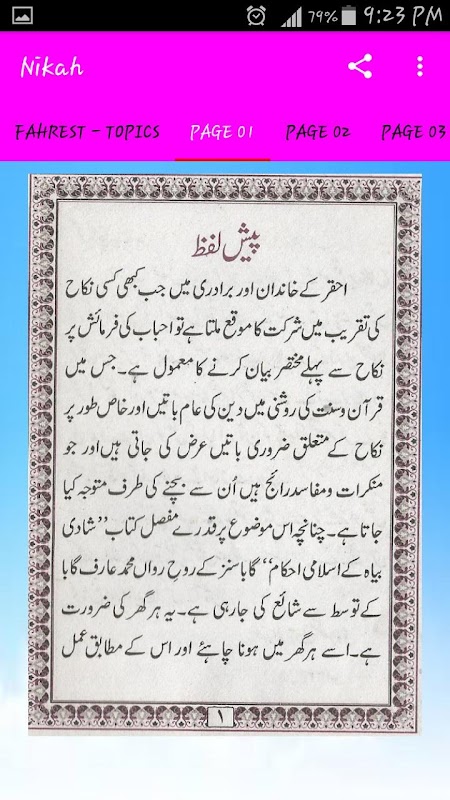 79% 9:23 PM
Nikah
FAHREST - TOPICS PAGE 01 PAGE 02 PAGE 03
پیش لفظ
احقر کے خاندان اور برادری میں جب کبھی کسی نکاح
کی تقریب میں شرکت کا موقع ملتا ہے تو احباب کی فرمائش پر
نکاح سے پہلے مختصر بیان کرنے کا معمول ہے۔ جس میں
قرآن و سنت کی روشنی میں دین کی عام باتیں اور خاص طور پر
نکاح کے متعلق ضروری باتیں عرض کی جاتی ہیں اور جو
منکرات و مفاسد رائج ہیں اُن سے بچنے کی طرف متوجہ کیا
جاتا ہے۔ چنانچہ اس موضوع پر قدرے مفصل کتاب ’’شادی
بیاہ کے اسلامی احکام‘‘ گابا سنز کے روحِ رواں محمد عارف گابا
کے توسط سے شائع کی جارہی ہے۔ یہ ہر گھر کی ضرورت
ہے۔ اسے ہر گھر میں ہونا چاہئے اور اس کے مطابق عمل
۱